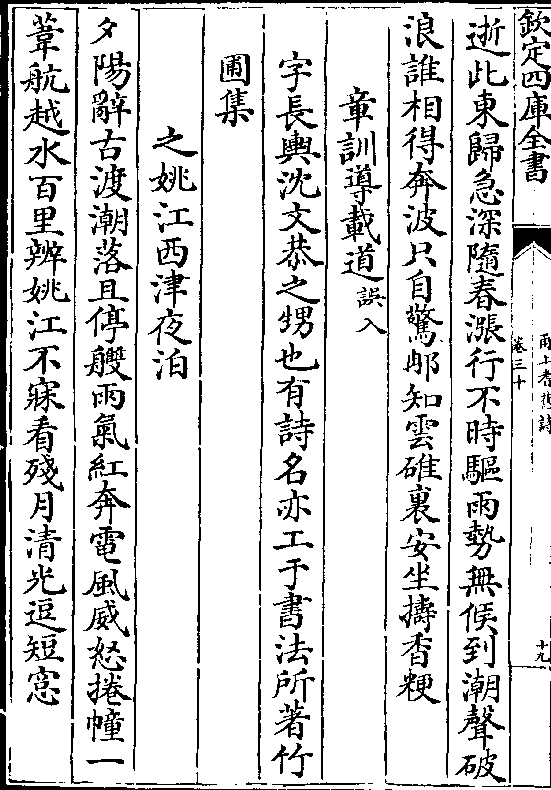 欽定四庫全書
甬上耆舊詩
卷三十
十九
逝此東歸急深隨春漲行不時驅雨勢無候到潮聲破
浪誰相得奔波只自驚邮知雲碓裏安坐擣香粳
章訓導載道誤入
字長輿沈文恭之甥也有詩名亦工于書法所著竹
圃集
之姚江西津夜泊
夕陽辭古渡潮落且停艭雨氣紅奔電風威怒捲幢一
葦航越水百里辨姚江不寐看殘月清光逗短窓